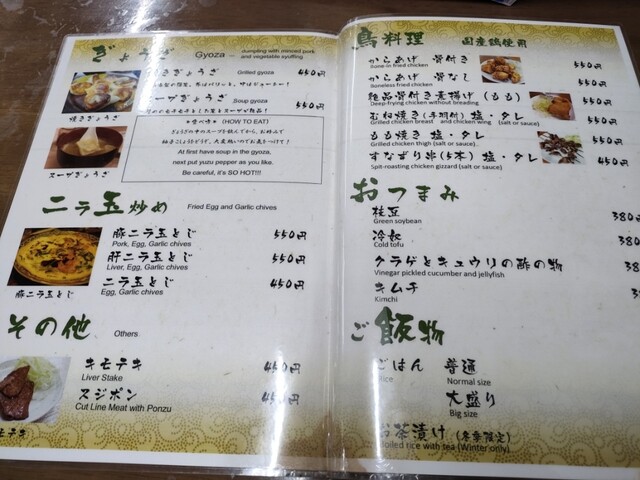 ぎょうざ Gyoza – Jumpling with minced pork and vegetable syuffing
焼きぎょうざ 450円
Grilled gyoza
スープぎょうざ 550円
Soup gyoza
★食べ方★ (HOW TO EAT)
At first have soup in the gyoza,
next put yuzu pepper as you like.
Be careful, it's SO HOT!!!
焼きぎょうざ
スープぎょうざ
ニラ玉炒め Fried Egg and Garlic chives
豚ニラ玉とじ 550円
Pork, Egg, Garlic chives
肝ニラ玉とじ 550円
Liver, Egg, Garlic chives
ニラ玉とじ 450円
Egg, Garlic chives
豚ニラ玉とじ
その他 Others
キモテキ 450円
Liver Stake
スジポン 450円
Cut Line Meat with Ponzu
キモテキ
鳥料理 国産鶏使用
からあげ 骨付き 550円
Bone in fried chicken
からあげ 骨なし 550円
Boneless fried chicken
骨付き素揚げ(もも) 550円
Deep-frying chicken without breading
むね焼き(手羽付) 塩・タレ 550円
Grilled chicken breast and chicken wing (salt or sauce)
もも焼き 塩・タレ 550円
Grilled chicken thigh (salt or sauce)
すなずり串(5本) 塩・タレ 450円
Spit-roasting chicken gizzard (salt or sauce)
おつまみ
枝豆 380
Green soybean
冷奴 380
Cold tofu
クラゲとキュウリの酢の物 380
Vinegar pickled cucumber and jellyfish
キムチ
Kimchi
ご飯物
ごはん 普通
Rice Normal size
大盛り
Big size
お茶漬け (冬季限定)
Boiled rice with tea (Winter only)